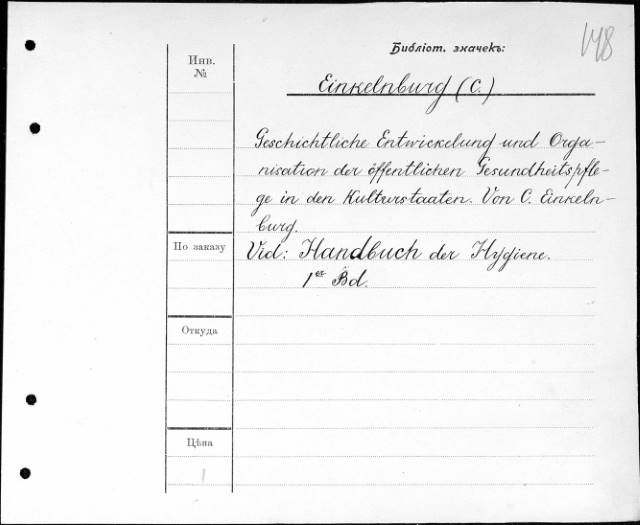 Библіот. значекъ:
148
Инв.
№
Einkelnburg (C.)
Geschichtliche Entwickelung und Orga-
nisation der öffentlichen Gesundheitspfle-
ge in den Kulturstaaten. Von C. Einkeln-
burg.
По заказу
Vid: Handbuch der Hygiene.
1er Bd.
Откуда
Цѣна
1